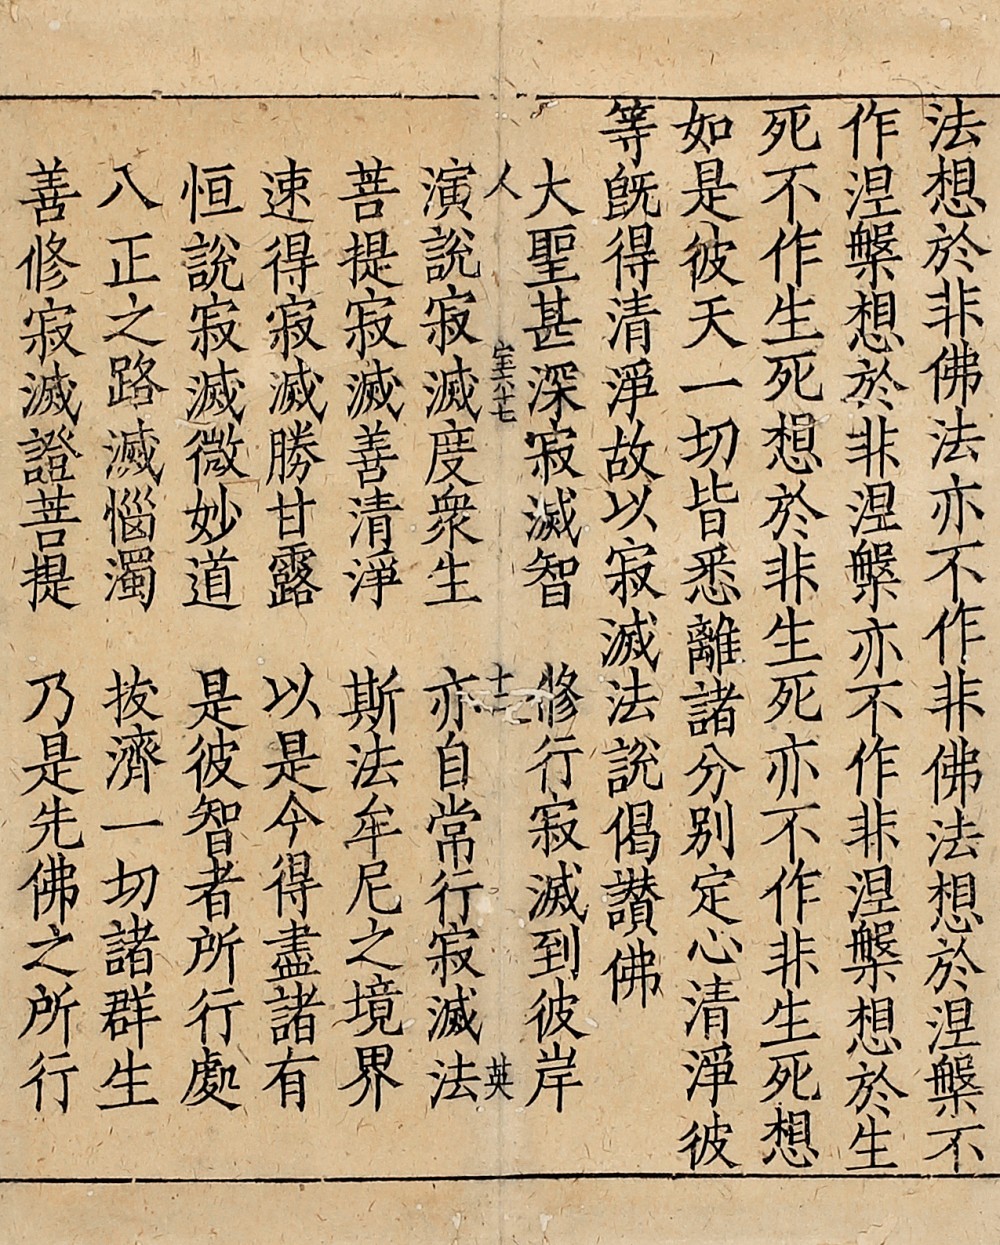 法想於非佛法亦不作非佛法想於涅槃不
作涅槃想於非涅槃亦不作非涅槃想於生
死不作生死想於非生死亦不作非生死想
如是彼天一切皆悉離諸分别定心清淨彼
等旣得清淨故以寂滅法說偈讚佛
大聖甚深寂滅智 修行寂滅到彼岸
人 十二 英
演說寂滅度衆生 亦自常行寂滅法
菩提寂滅善清淨 斯法牟尼之境界
速得寂滅勝甘露 以是今得盡諸有
恒說寂滅微妙道 是彼智者所行處
八正之路滅惱濁 拔濟一切諸群生
善修寂滅證菩提 乃是先佛之所行